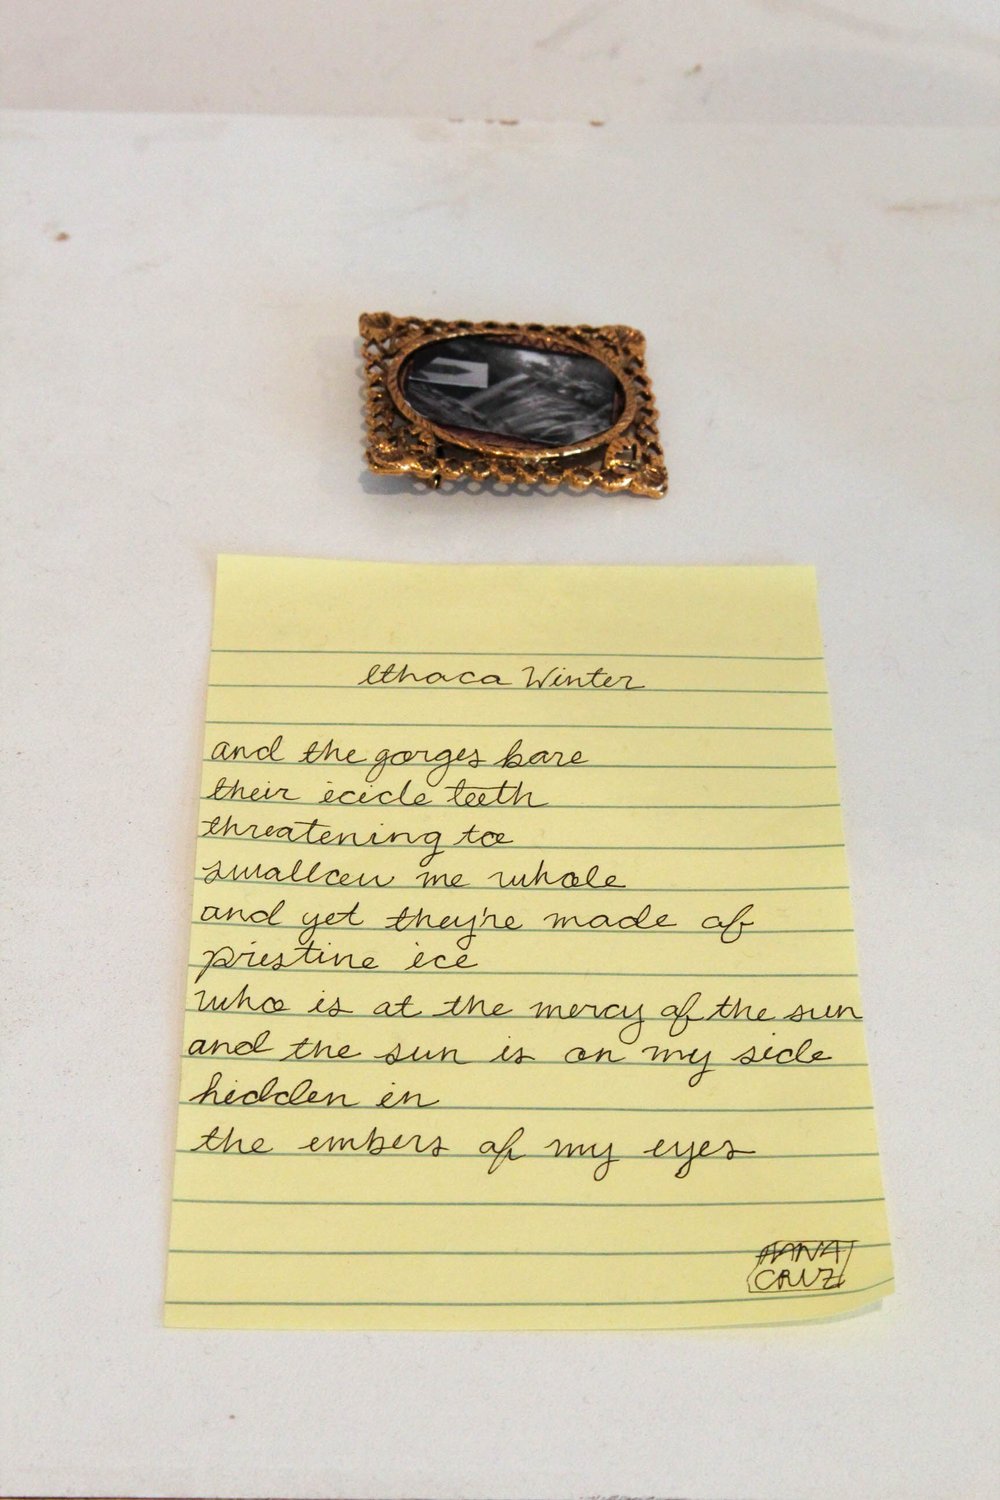 Ithaca Winter
and the gorges bare
their icicle teeth
threatening to
swallow me whole
and yet they're made of
pristine ice
who is at the mercy of the sun
and the sun is on my side
hidden in
the embers of my eyes
CRUZ